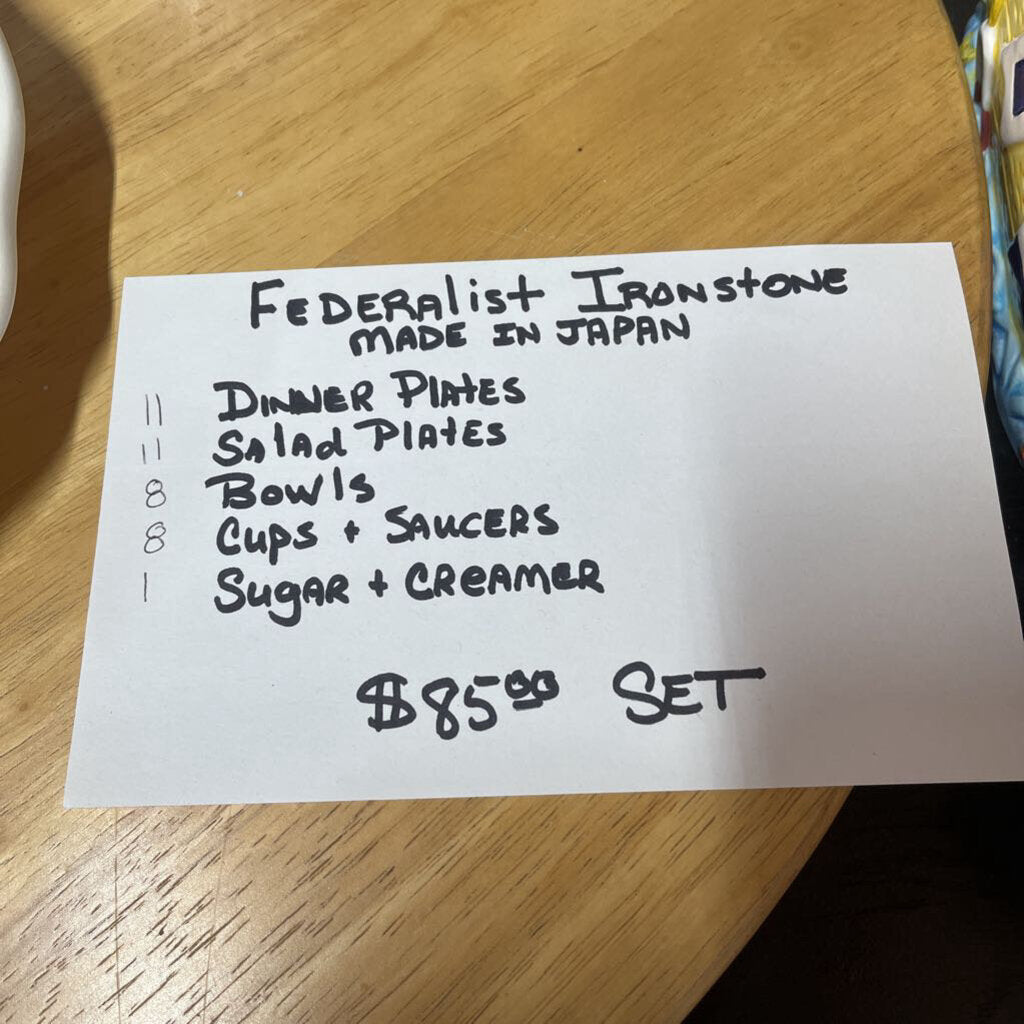 FEDERAlist IRONstONE
MADE IN JAPAN
11 DINNER PlAtES
11 SAlAd PlAtES
8 Bowls
8 Cups + SAUCERS
1 SugAR + CReAMER
$85.00 SET